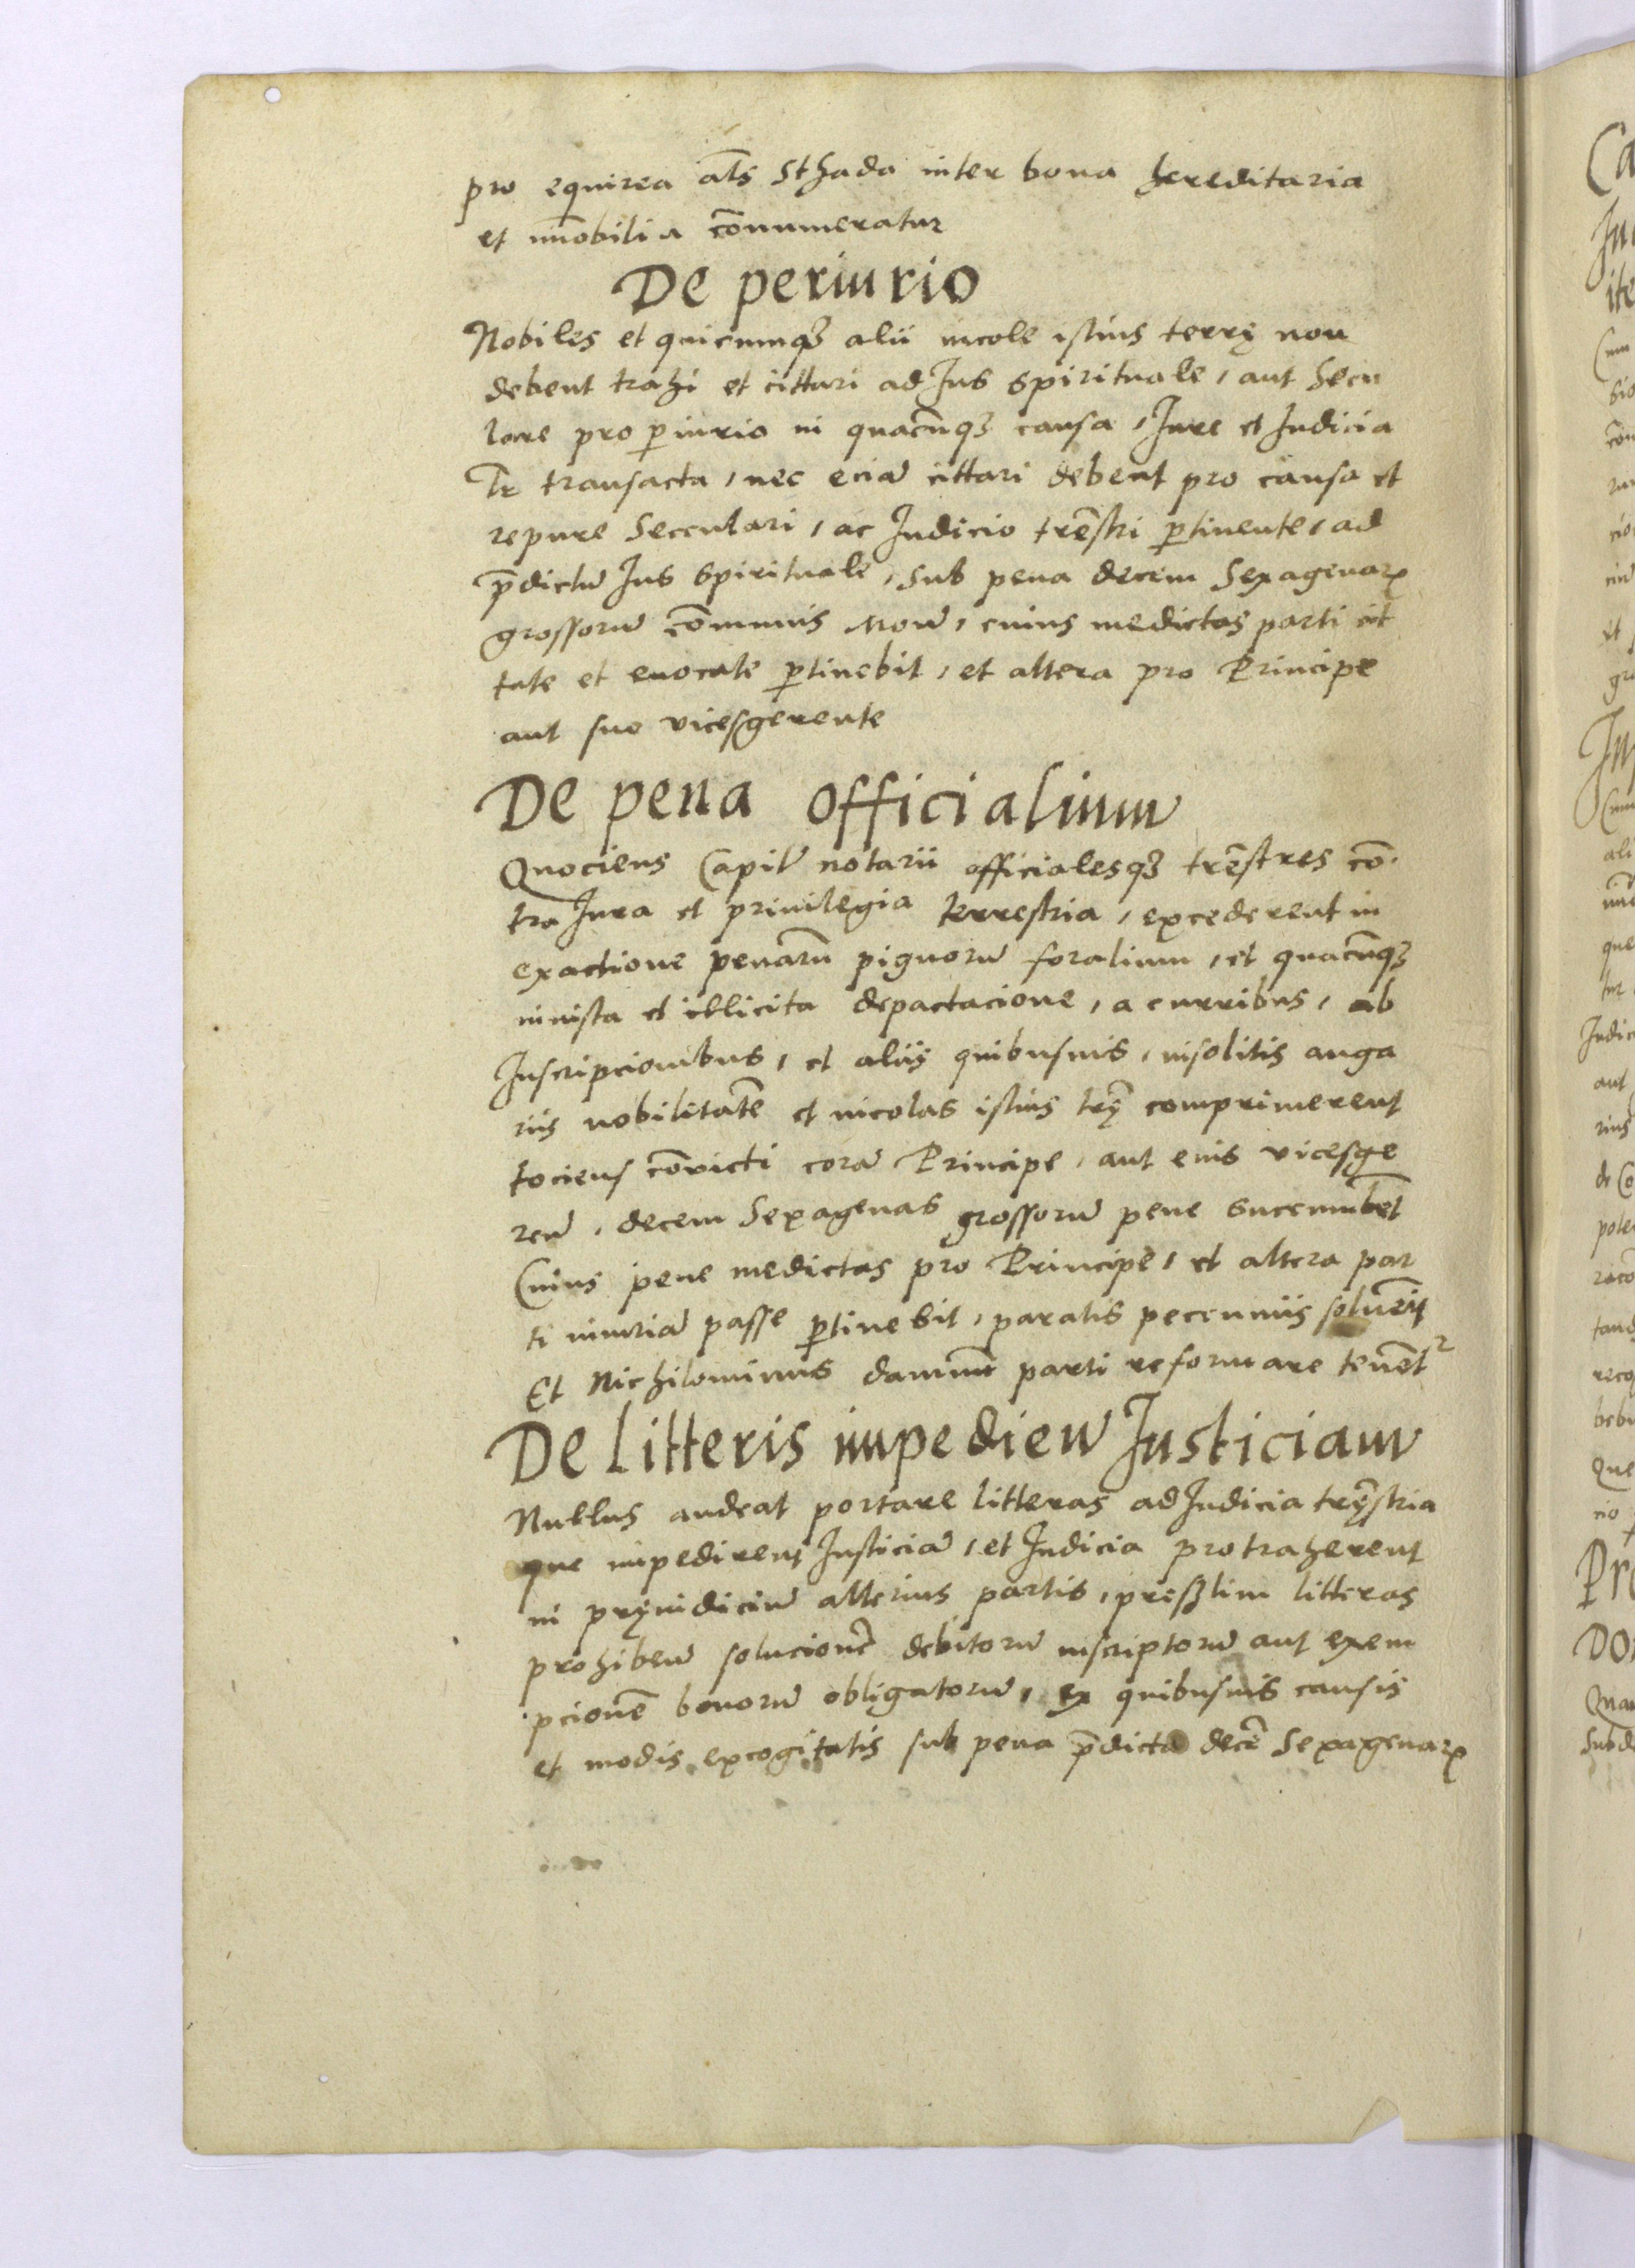 pro equirea al̃s Sthada inter bona hereditaria
et im̃obilia cõnnumeratur
De periurio
Nobiles et quicumqꝫ alii incole istius terrę non
debent trahi et cittari ad Ius spirituale, aut Secu
lare pro ꝑiurio in quacũqꝫ causa, Iure et Iudicia
lr̃ transacta, nec eciã cittari debent pro causa et
re pure Seculari, ac Iudicio tr̃estri ꝑtinente, ad
p̃dictũ Ius spirituale, sub pena decem Sexagenarꝝ
grossorũ cõmunis Mon̄, cuius medietas parti cit
tate et euocate ꝑtinebit, et altera pro Principe
aut suo vicesgerente
De pena officialium
Quociens Capit̃ notarii officialesqꝫ tr̃estres cõ
tra Iura et priuilegia terrestria, excederent in
exactione penarũ pignorũ foralium, et quacũqꝫ
iniusta et illicita depactacione, a curribus, ab
Inscripcionibus, et aliis quibusuis, insolitis anga
riis nobilitatẽ et incolas istius tr̃ę comprimerent
tociens cõuicti corã Principe, aut eius vicesge
ren̄, decem Sexagenas grossorũ pene succumbẽt
Cuius pene medietas pro Principe, et altera par
ti iniuriã passe ꝑtinebit, paratis pecuniis soluẽt
Et Nichilominus damnũ parti reformare tenẽtᷣ
De litteris impedien̄ Iusticiam
Nullus audeat portare litteras ad Iudicia tr̃ęstria
que impedirent Iusticiã, et Iudicia protraherent
in pręiudiciũ alterius partis, presertim litteras
prohiben̄ solucionẽ debitorũ inscriptorũ aut exem
pcionẽ bonorũ obligatorũ, ex quibusuis causis
et modis excogitatis sub pena p̃dicta decẽ Sexagenarꝝ